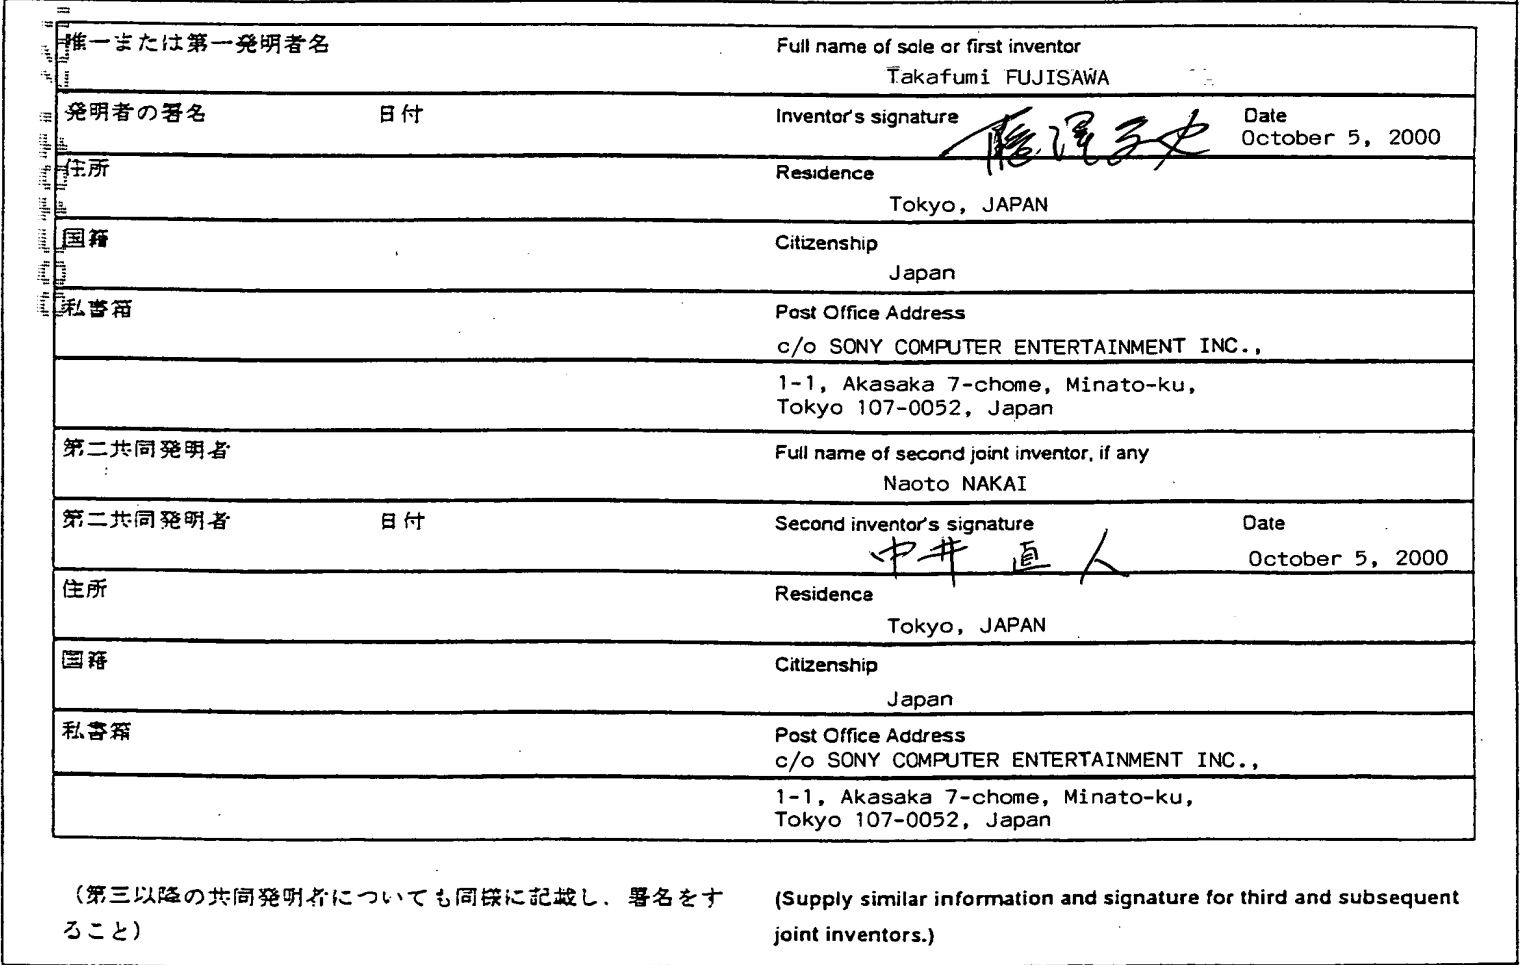 唯一または第一発明者名
Full name of sole or first inventor
Takafumi FUJISAWA
発明者の署名 日付
Inventor's signature Date
October 5, 2000
住所
Residence
Tokyo, JAPAN
国籍
Citizenship
Japan
私書箱
Post Office Address
c/o SONY COMPUTER ENTERTAINMENT INC.,
1-1, Akasaka 7-chome, Minato-ku,
Tokyo 107-0052, Japan
第二共同発明者
Full name of second joint inventor, if any
Naoto NAKAI
第二共同発明者 日付
Second inventor's signature Date
中井 直人 October 5, 2000
住所
Residence
Tokyo, JAPAN
国籍
Citizenship
Japan
私書箱
Post Office Address
c/o SONY COMPUTER ENTERTAINMENT INC.,
1-1, Akasaka 7-chome, Minato-ku,
Tokyo 107-0052, Japan
（第三以降の共同発明者についても同様に記載し、署名をす
ること）
(Supply similar information and signature for third and subsequent
joint inventors.)